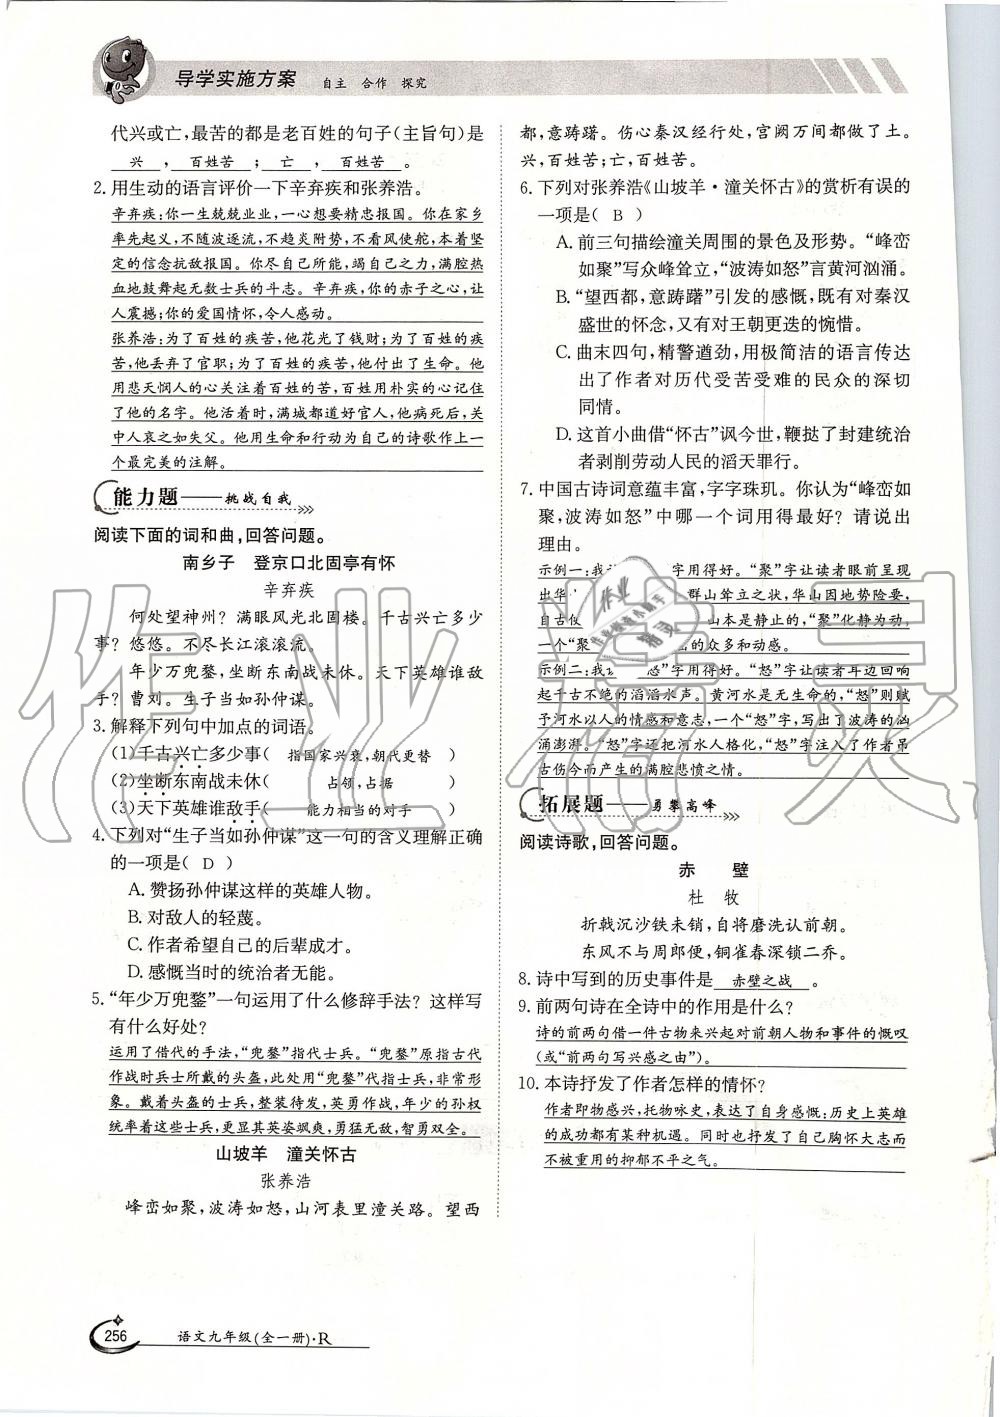 导学实施方案 自主 合作 探究
代兴或亡，最苦的都是老百姓的句子（主旨句）是
兴 ， 百姓苦 ； 亡 ， 百姓苦 。
2. 用生动的语言评价一下辛弃疾和张养浩。
辛弃疾：你一生兢兢业业，一心想要精忠报国。你在家乡
率先起义，不随波逐流，不趋炎附势，不看风使舵，本着坚
定的信念抗敌报国。你尽自己所能，竭自己之力，满腔热
血地鼓舞起无数士兵的斗志。辛弃疾，你的赤子之心，让
人震撼；你的爱国情怀，令人感动。
张养浩：为了百姓的疾苦，他花光了钱财；为了百姓的疾
苦，他丢弃了官职；为了百姓的疾苦，他付出了生命。他
用悲天悯人的心关注着百姓的苦，百姓用朴实的心记住
了他的名字。他活着时，满城都道好官人，他病死后，关
中人哀之如失父。他用生命和行动为自己的诗歌作上一
个最完美的注解。
能力题——挑战自我
阅读下面的词和曲，回答问题。
南乡子 登京口北固亭有怀
辛弃疾
何处望神州？满眼风光北固楼。千古兴亡多少
事？悠悠。不尽长江滚滚流。
年少万兜鍪，坐断东南战未休。天下英雄谁敌
手？曹刘。生子当如孙仲谋。
3. 解释下列句中加点的词语。
(1)千古兴亡多少事（ 指国家兴衰，朝代更替 ）
(2)坐断东南战未休（ 占领，占据 ）
(3)天下英雄谁敌手（ 能力相当的对手 ）
4. 下列对“生子当如孙仲谋”这一句的含义理解正确
的一项是（ D ）
A. 赞扬孙仲谋这样的英雄人物。
B. 对敌人的轻蔑。
C. 作者希望自己的后辈成才。
D. 感慨当时的统治者无能。
5. “年少万兜鍪”一句运用了什么修辞手法？这样写
有什么好处？
运用了借代的手法，“兜鍪”指代士兵。“兜鍪”原指古代
作战时兵士所戴的头盔，此处用“兜鍪”代指士兵，非常形
象。戴着头盔的士兵，整装待发，英勇作战，年少的孙权
统率着这些士兵，更显其英姿飒爽，勇猛无敌，智勇双全。
山坡羊 潼关怀古
张养浩
峰峦如聚，波涛如怒，山河表里潼关路。望西
都，意踌躇。伤心秦汉经行处，宫阙万间都做了土。
兴，百姓苦；亡，百姓苦。
6. 下列对张养浩《山坡羊·潼关怀古》的赏析有误的
一项是（ B ）
A. 前三句描绘潼关周围的景色及形势。“峰峦
如聚”写众峰耸立，“波涛如怒”言黄河汹涌。
B. “望西都，意踌躇”引发的感慨，既有对秦汉
盛世的怀念，又有对王朝更迭的惋惜。
C. 曲末四句，精警遒劲，用极简洁的语言传达
出了作者对历代受苦受难的民众的深切
同情。
D. 这首小曲借“怀古”讽今世，鞭挞了封建统治
者剥削劳动人民的滔天罪行。
7. 中国古诗词意蕴丰富，字字珠玑。你认为“峰峦如
聚，波涛如怒”中哪一个词用得最好？请说出
理由。
示例一：我 字用得好。“聚”字让读者眼前呈现
出华 群山耸立之状，华山因地势险要，
自古 山本是静止的，“聚”化静为动，
一个“聚 的众多和动感。
示例二：我 怒”字用得好。“怒”字让读者耳边回响
起千古不绝的滔滔水声。黄河水是无生命的，“怒”则赋
予河水以人的情感和意志，一个“怒”字，写出了波涛的汹
涌澎湃。“怒”字还把河水人格化，“怒”字注入了作者吊
古伤今而产生的满腔悲愤之情。
拓展题——勇攀高峰
阅读诗歌，回答问题。
赤 壁
杜 牧
折戟沉沙铁未销，自将磨洗认前朝。
东风不与周郎便，铜雀春深锁二乔。
8. 诗中写到的历史事件是 赤壁之战 。
9. 前两句诗在全诗中的作用是什么？
诗的前两句借一件古物来兴起对前朝人物和事件的慨叹
（或“前两句写兴感之由”）。
10. 本诗抒发了作者怎样的情怀？
作者即物感兴，托物咏史，表达了自身感慨：历史上英雄
的成功都有某种机遇。同时也抒发了自己胸怀大志而
不被重用的抑郁不平之气。
256 语文九年级（全一册）·R
作业精灵